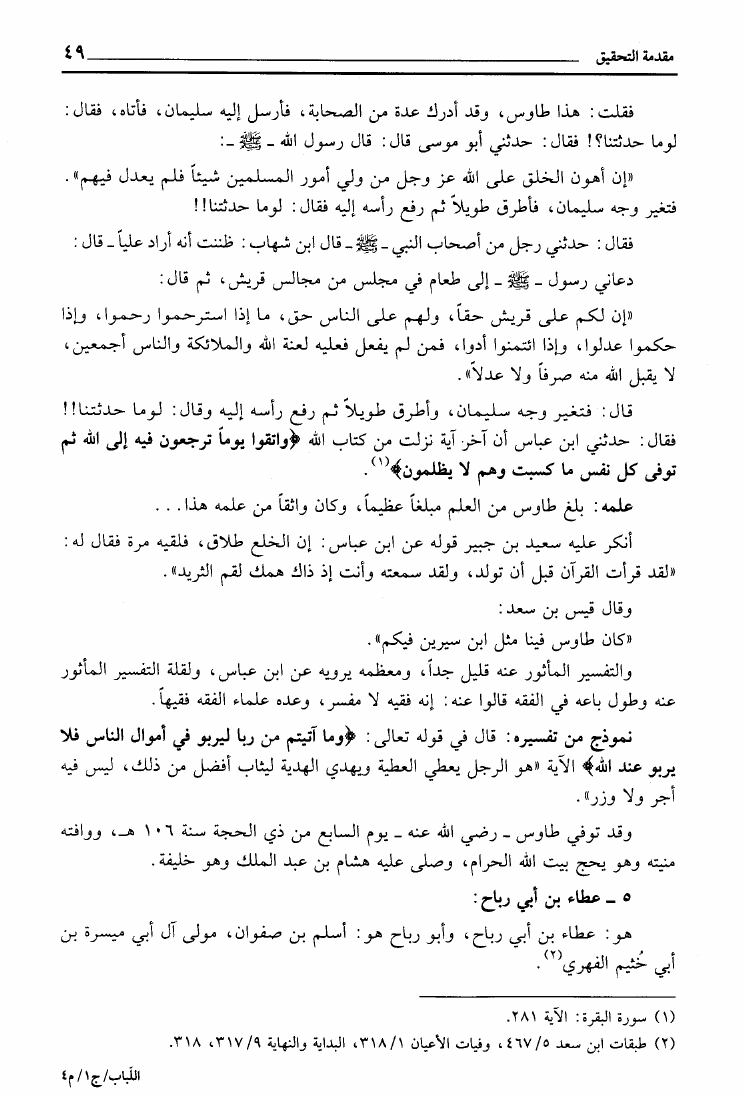 مقدمة التحقيق ٤٩
فقلت: هذا طاوس، وقد أدرك عدة من الصحابة، فأرسل إليه سليمان، فأتاه، فقال:
لوما حدثتنا؟! فقال: حدثني أبو موسى قال: قال رسول الله ـ ﷺ ـ:
«إن أهون الخلق على الله عز وجل من ولي أمور المسلمين شيئاً فلم يعدل فيهم».
فتغير وجه سليمان، فأطرق طويلاً ثم رفع رأسه إليه فقال: لوما حدثتنا!!
فقال: حدثني رجل من أصحاب النبي ـ ﷺ ـ قال ابن شهاب: ظننت أنه أراد علياً ـ قال:
دعاني رسول ـ ﷺ ـ إلى طعام في مجلس من مجالس قريش، ثم قال:
«إن لكم على قريش حقاً، ولهم على الناس حق، ما إذا استرحموا رحموا، وإذا
حكموا عدلوا، وإذا ائتمنوا أدوا، فمن لم يفعل فعليه لعنة الله والملائكة والناس أجمعين،
لا يقبل الله منه صرفاً ولا عدلاً».
قال: فتغير وجه سليمان، وأطرق طويلاً ثم رفع رأسه إليه وقال: لوما حدثتنا!!
فقال: حدثني ابن عباس أن آخر آية نزلت من كتاب الله ﴿واتقوا يوماً ترجعون فيه إلى الله ثم
توفى كل نفس ما كسبت وهم لا يظلمون﴾(١).
علمه: بلغ طاوس من العلم مبلغاً عظيماً، وكان واثقاً من علمه هذا...
أنكر عليه سعيد بن جبير قوله عن ابن عباس: إن الخلع طلاق، فلقيه مرة فقال له:
«لقد قرأت القرآن قبل أن تولد، ولقد سمعته وأنت إذ ذاك همك لقم الثريد».
وقال قيس بن سعد:
«كان طاوس فينا مثل ابن سيرين فيكم».
والتفسير المأثور عنه قليل جداً، ومعظمه يرويه عن ابن عباس، ولقلة التفسير المأثور
عنه وطول باعه في الفقه قالوا عنه: إنه فقيه لا مفسر، وعده علماء الفقه فقيهاً.
نموذج من تفسيره: قال في قوله تعالى: ﴿وما آتيتم من ربا ليربو في أموال الناس فلا
يربو عند الله﴾ الآية «هو الرجل يعطي العطية ويهدي الهدية ليثاب أفضل من ذلك، ليس فيه
أجر ولا وزر».
وقد توفي طاوس ـ رضي الله عنه ـ يوم السابع من ذي الحجة سنة ١٠٦ هـ، ووافته
منيته وهو يحج بيت الله الحرام، وصلى عليه هشام بن عبد الملك وهو خليفة.
٥ ـ عطاء بن أبي رباح:
هو: عطاء بن أبي رباح، وأبو رباح هو: أسلم بن صفوان، مولى آل أبي ميسرة بن
أبي خُثيم الفهري(٢).
(١) سورة البقرة: الآية ٢٨١.
(٢) طبقات ابن سعد ٥/ ٤٦٧، وفيات الأعيان ١/ ٣١٨، البداية والنهاية ٩/ ٣١٧، ٣١٨.
اللباب/ ج١/ م٤